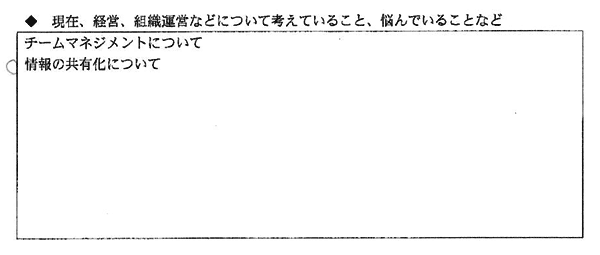 ◆ 現在、経営、組織運営などについて考えていること、悩んでいることなど
チームマネジメントについて
情報の共有化について